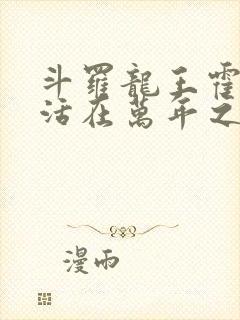 斗羅龍王霍
活在萬年之
漫雨